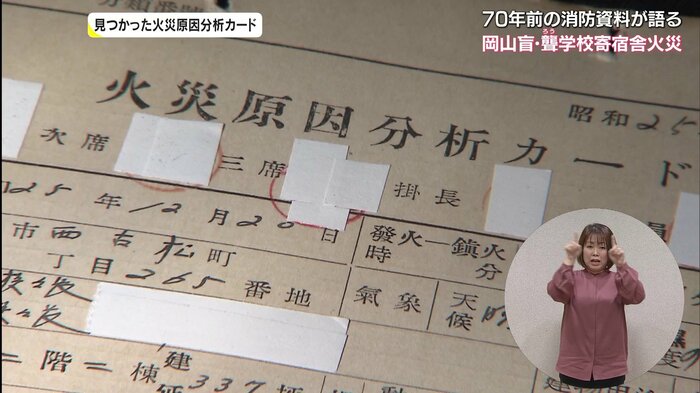 見つかった火災原因分析カード
70年前の消防資料が語る
岡山盲・聾学校寄宿舎火災
ろう
火災原因分析カード
昭和25
次席 三席 掛長 員
25年12月20日
發火 鎮火
時 分
市西古松町
丁目265番地
氣象 天候
後
後
二階 棟 建
337坪